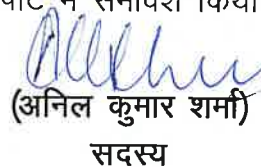 में समावेश किया
(अनिल कुमार शर्मा)
सदस्य